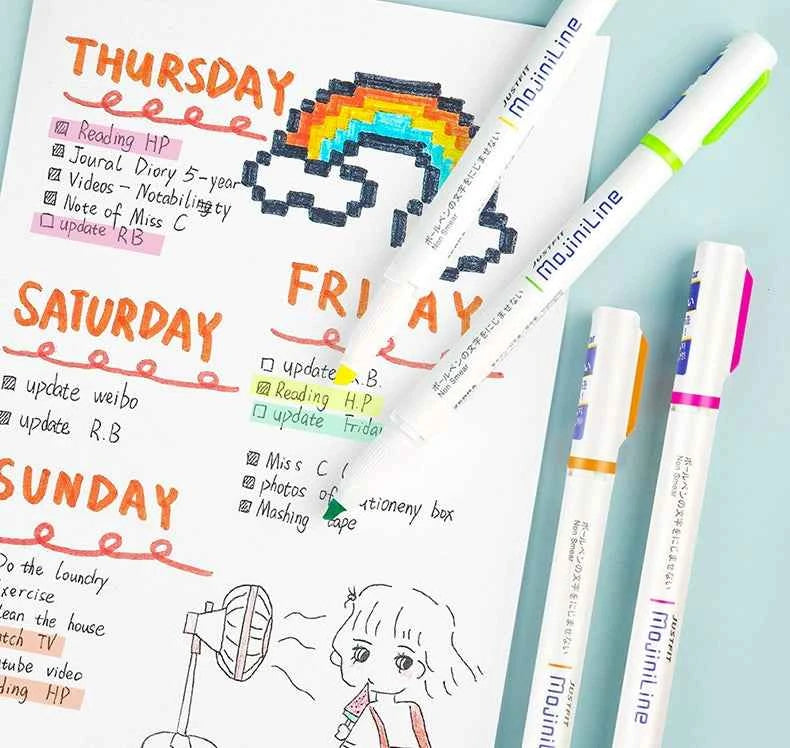 THURSDAY
Reading HP
Joural Diary 5-year
Videos - Notability
Note of Miss C
update RB
SATURDAY
update weibo
update R.B
FRI AY
update R.B.
Reading H.P
update Frida
Miss C
photos of tioneny box
Mashing tape
SUNDAY
Do the loundry
xercise
lean the house
tch TV
tube video
ding HP
JUSTFIT
MojiniLine
ボールペンの文字をにじませない
Non Smear
ZEBRA
JUSTFIT
MojiniLine
ボールペンの文字をにじませない
Non Smear
ZEBRA
ボールペンの文字をにじませない
Non Smear
JUSTFIT
MojiniLine
ボールペンの文字をにじませない
Non Smear
JUSTFIT
MojiniLine